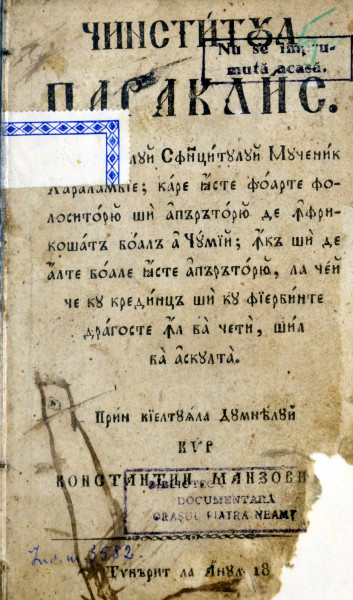 ЧИНСТИ́ТꙊЛ
5
Nu se împru-
mută acasă.
ПАРАКЛИ́С.
Сфн҃цитꙋлꙋй Мꙋченик
Хараламбїе; ка́ре ꙗ҆́сте фо́арте фо-
лоситорю̆ шѝ а҆пъръторю̆ де ꙟ҆фри-
кошатъ бо́алъ а҆ Чꙋмїй; ꙟ҆къ шѝ де
а҆́лте бо́але ꙗ҆́сте а҆пъръторю̆, ла че́й
че кꙋ крединцъ шѝ кꙋ фїербинте
дра́госте ꙟ҆л ва̀ четѝ, шил
ва̀ а҆скꙋлта̀.
Прин кїелтꙋꙗла Дꙋмнѣлꙋй
КѴР
КОНСТАНТИН МАНЗОВИ
DOCUMENTARĂ
ORAȘUL PIATRA NEAMȚ
3582.
Тѵпърит ла А҆нꙋл 18